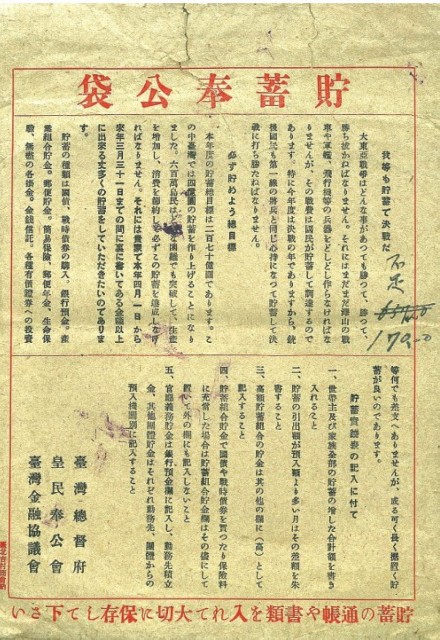 貯蓄奉公袋
我等も貯蓄で決戰だ
大東亞戰爭はどんな事があつても勝つて、勝つて、
勝ち拔かねばなりません。それにはまだまだ澤山の戰
車や軍艦、飛行機等の兵器をどしどし作らなければな
りませんが、その戰費は國民が貯蓄して調達するので
あります。特に今年度は決戰の年でありますから、銃
後國民も第一線の將兵と同じ心持になつて貯蓄して決
戰に打ち勝たねばなりません。
必ず貯めよう總目標
本年度の貯蓄總目標は二百七十億圓であります。こ
の中臺灣では四億圓の貯蓄を作り上げることになり
ました。六百萬島民はどんな困難でも突破して、生産
を増加し、消費を節約して必ずこの貯蓄を達成しなけ
ればなりません。それには貴家で本年四月一日から
來年三月三十一日までの間に裏に書いてある金額以上
に出來る丈多くの貯蓄をしていただきたいのでありま
す。
貯蓄の種類は國債、戰時債券の購入、銀行預金。産
業組合貯金。郵便貯金。簡易保險、郵便年金、生命保
險、無盡の各掛金。金錢信託。各種有價證券への投資
等何でも差支へありませんが、成る可く長く据置く貯
蓄が良いのであります。
貯蓄實踐表の記入に付て
一、世帶主及び家族全部の貯蓄の増した合計額を書き
入れること
二、貯蓄の引出額が預入額より多い月はその差額を朱
書すること
三、高額貯蓄組合の貯金は其の他の欄に(高)として
記入すること
四、貯蓄組合貯金で國債や戰時債券を買つたり保險料
に充當した場合は貯蓄組合貯金欄はその儘にして
置いて外の欄にも記入しないこと
五、官廳義務貯金は銀行預金欄に記入し、勤務先積立
金、其他團體貯金はそれぞれ勤務先、團體からの
預入機關別に記入すること
臺灣總督府
皇民奉公會
臺灣金融協議會
170.00
貯蓄の通帳や書類を入れて大切に保存して下さい